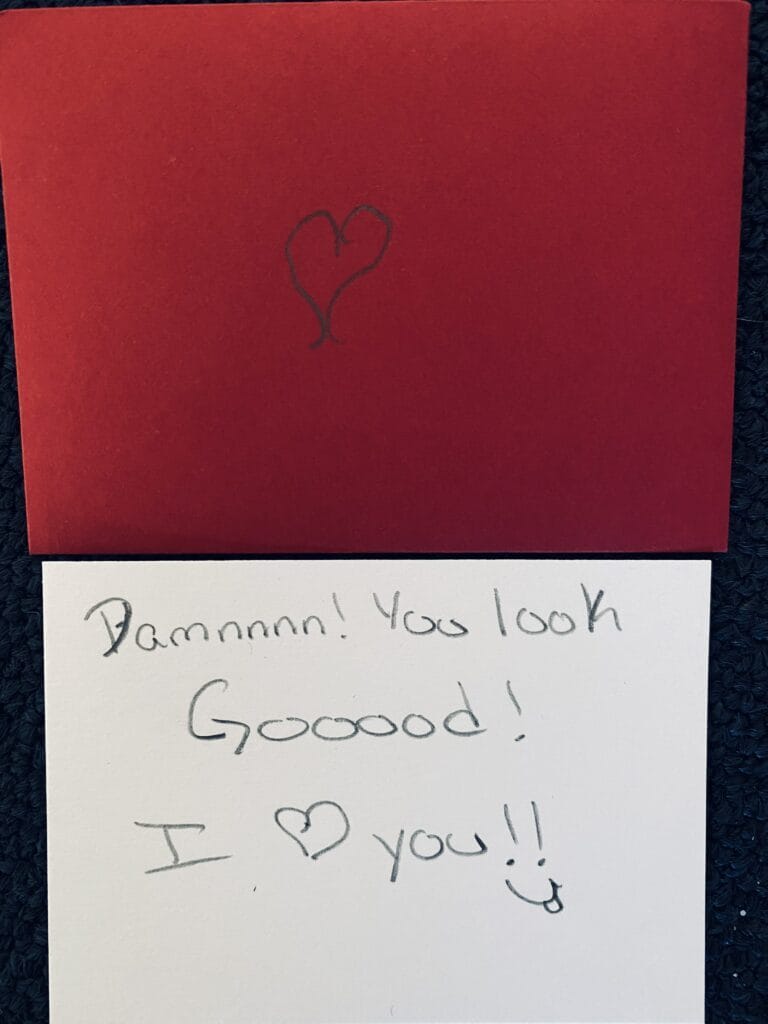 Damnnnn! You look
Gooood!
I ♡ you!!